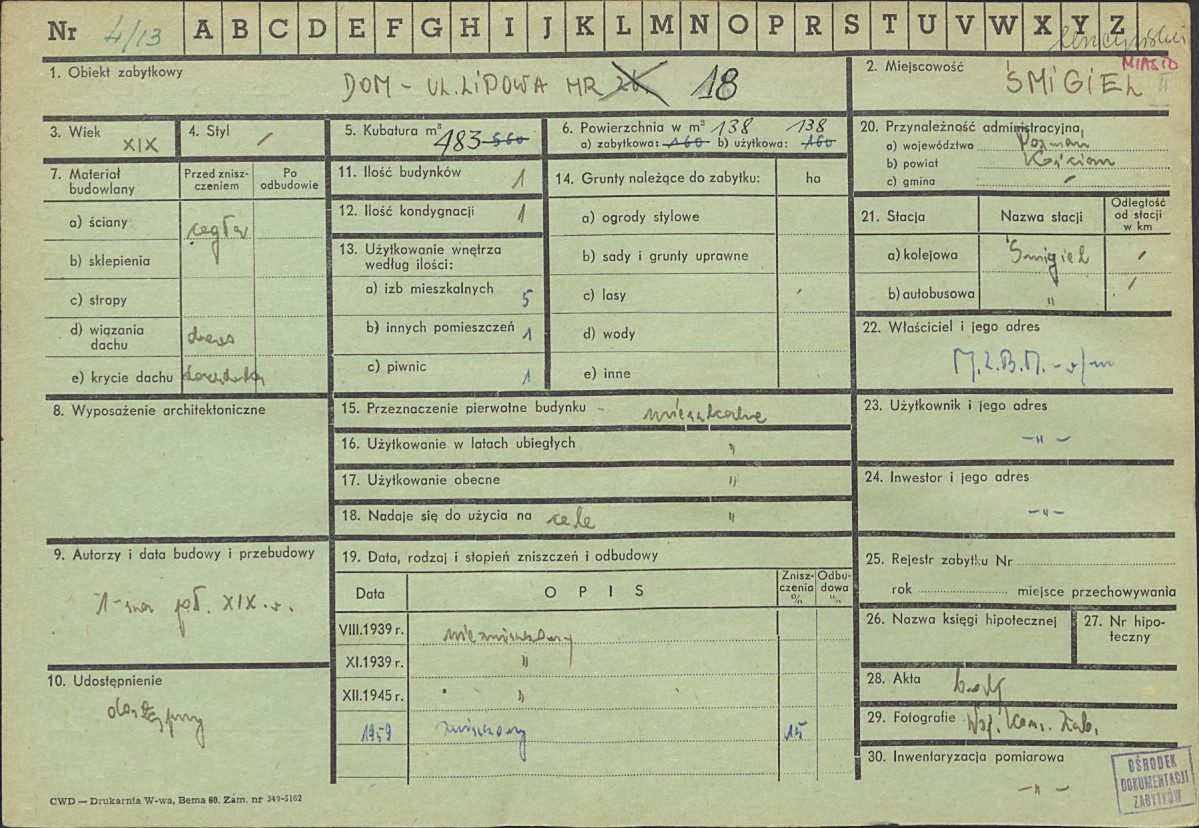 Nr 4/13 A B C D E F G H I J K L M N O P R S T U V W X Y Z
MIASTO
1. Obiekt zabytkowy DOM - UL. LIPOWA NR 20. 18
2. Miejscowość ŚMIGIEL
3. Wiek XIX
4. Styl /
5. Kubatura m³ 483 560
6. Powierzchnia w m² 138 138
a) zabytkowa: 160 b) użytkowa: 160
20. Przynależność administracyjna
a) województwo Poznań
b) powiat Kościan
c) gmina -
7. Materiał budowlany
Przed zniszczeniem
Po odbudowie
a) ściany cegła
b) sklepienia
c) stropy
d) wiązania dachu drewno
e) krycie dachu dachówka
11. Ilość budynków 1
12. Ilość kondygnacji 1
13. Użytkowanie wnętrza
według ilości:
a) izb mieszkalnych 5
b) innych pomieszczeń 1
c) piwnic 1
14. Grunty należące do zabytku: ha
a) ogrody stylowe
b) sady i grunty uprawne
c) lasy
d) wody
e) inne
21. Stacja Nazwa stacji
Odległość
od stacji
w km
a) kolejowa Śmigiel /
b) autobusowa " /
22. Właściciel i jego adres
M.Z.B.M. - w/m
8. Wyposażenie architektoniczne
15. Przeznaczenie pierwotne budynku - mieszkalne
16. Użytkowanie w latach ubiegłych "
17. Użytkowanie obecne "
18. Nadaje się do użycia na cele "
23. Użytkownik i jego adres
-"-
24. Inwestor i jego adres
-"-
9. Autorzy i data budowy i przebudowy
1-sza poł. XIX w.
10. Udostępnienie
dostępny
19. Data, rodzaj i stopień zniszczeń i odbudowy
Data OPIS
Zniszczenia %
Odbudowa %
VIII.1939 r. niezniszczony
XI.1939 r. "
XII.1945 r. "
1959 zniszczony 15
25. Rejestr zabytku Nr
rok miejsce przechowywania
26. Nazwa księgi hipotecznej
27. Nr hipoteczny
28. Akta brak
29. Fotografie Woj. Kons. Zab.
30. Inwentaryzacja pomiarowa
-"-
OŚRODEK
DOKUMENTACJI
ZABYTKÓW
CWD — Drukarnia W-wa, Bema 60. Zam. nr 349-5162